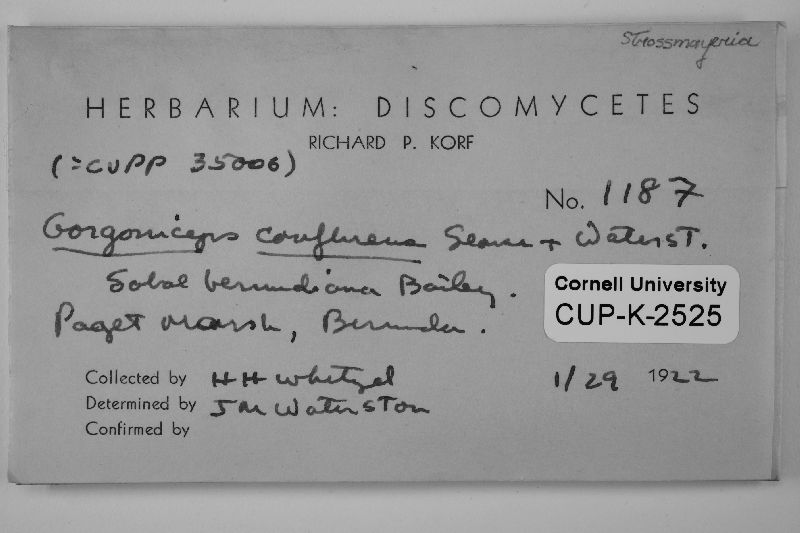 Strossmayeria
HERBARIUM: DISCOMYCETES
RICHARD P. KORF
(=CUPP 35006)
No. 1187
Gorgoniceps confluens Seaver + Waterst.
Sabal bermudiana Bailey.
Paget Marsh, Bermuda.
Cornell University
CUP-K-2525
Collected by H H Whetzel 1/29 1922
Determined by J M Waterston
Confirmed by